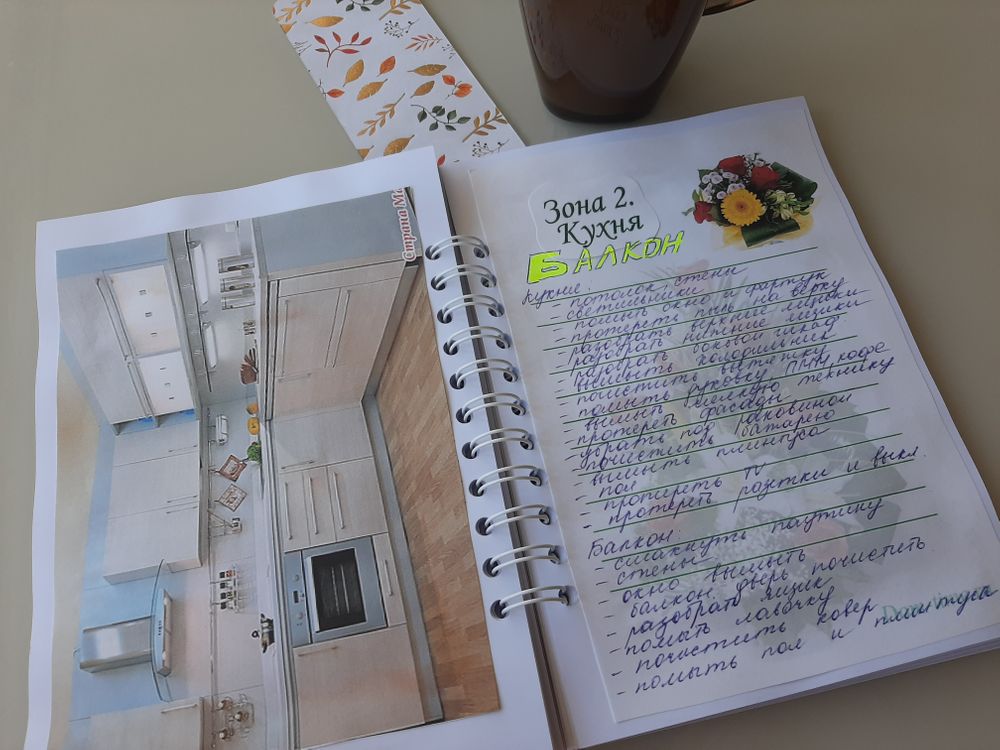 Страна Ма
Зона 2.
Кухня
БАЛКОН
Кухня:
- потолок, стены
- светильники
- помыть окно и фартук
- протереть пыль на верху
- разобрать верхние ящики
- разобрать нижние ящики
- разобрать боковой шкаф
- вымыть холодильник
- почистить вытяжку
- помыть духовку, ПММ, кофе
- вымыть мелкую технику
- протереть фасады
- убрать под раковиной
- почистить батарею
- вымыть плинтуса
- пол
- протереть TV
- протереть розетки и выкл.
Балкон:
- смахнуть паутину
- стены
- окно вымыть
- балкон. дверь почистить
- разобрать ящик
- помыть лавочку
- почистить ковер
- помыть пол и плинтуса